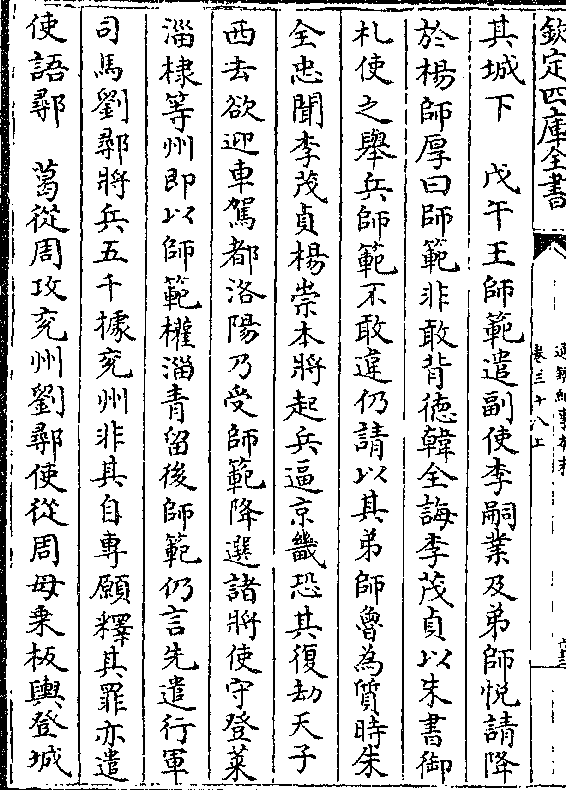 欽定四庫全書
通鑑紀事本末
卷三十八上
其城下　戊午王師範遣副使李嗣業及弟師悅請降
於楊師厚曰師範非敢背德韓全誨李茂貞以朱書御
札使之舉兵師範不敢違仍請以其弟師魯為質時朱
全忠聞李茂貞楊崇本將起兵逼京畿恐其復劫天子
西去欲迎車駕都洛陽乃受師範降選諸將使守登萊
淄棣等州即以師範權淄青留後師範仍言先遣行軍
司馬劉鄩將兵五千據兖州非其自専願釋其罪亦遣
使語鄩　葛從周攻兖州劉鄩使從周母乗板輿登城